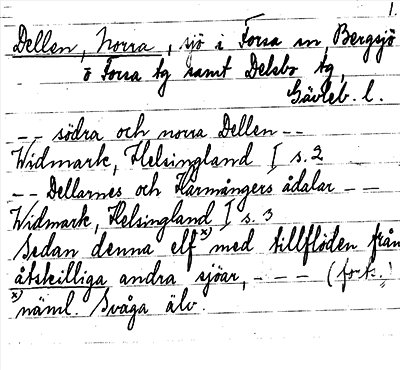 1.
Dellen, Norra, sjö i Forsa sn, Bergsjö
o Forsa tg samt Delsbo tg,
Gävleb. l.
-- södra och norra Dellen --
Widmark, Helsingland I s. 2
-- Dellarnes och Harmångers ådalar --
Widmark, Helsingland I s. 3
Sedan denna elf x) med tillflöden från
åtskilliga andra sjöar, --- (forts.)
x) näml. Svåga älv.